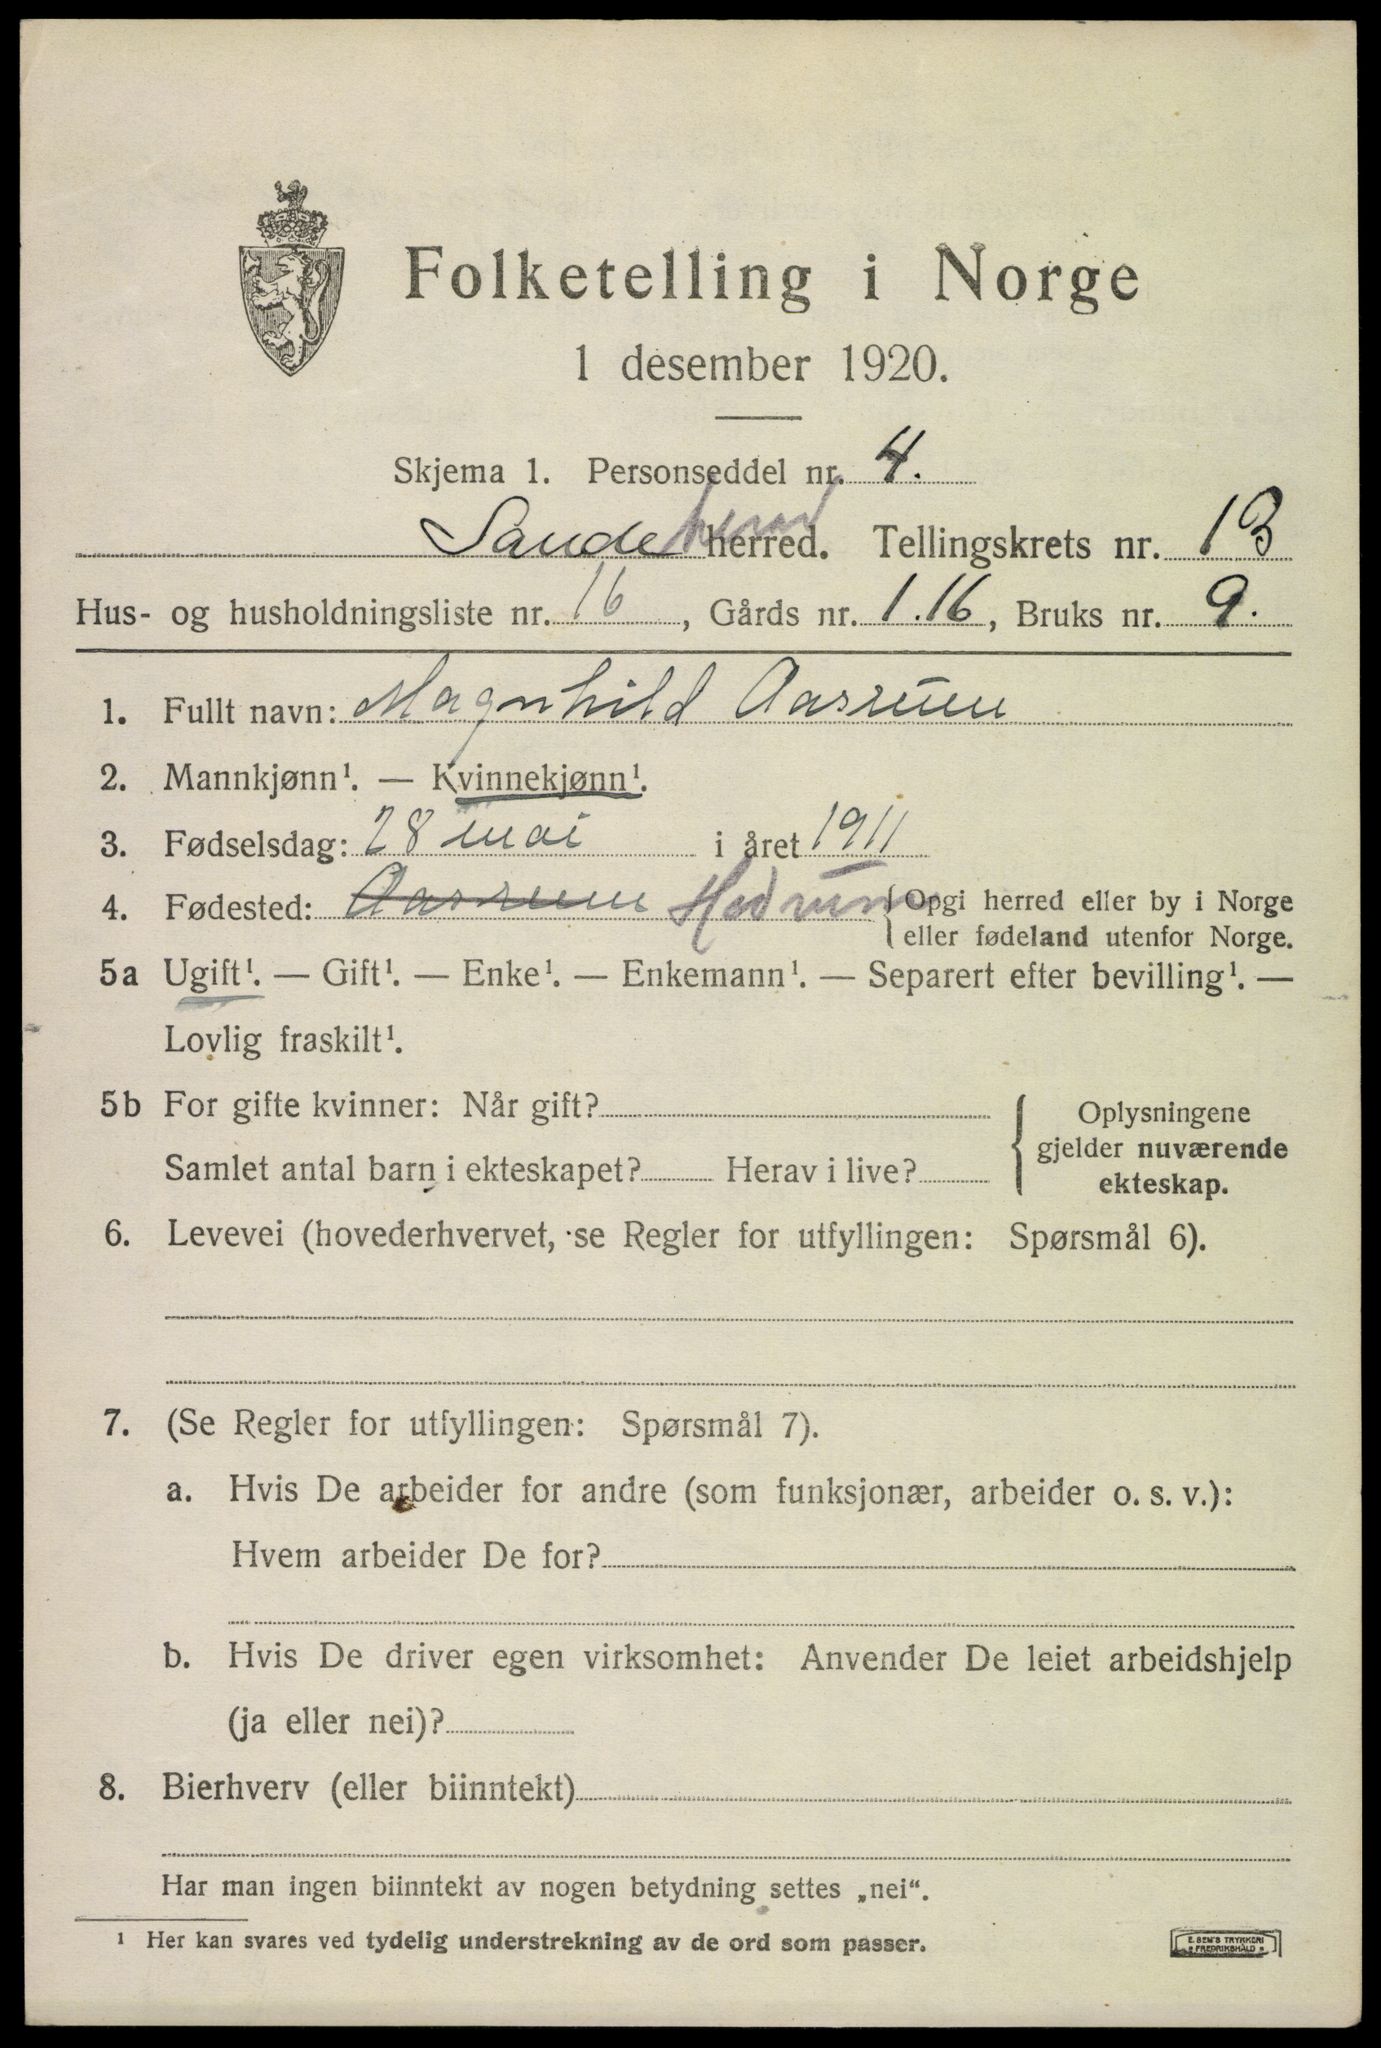 Folketelling i Norge
1 desember 1920.
Skjema 1. Personseddel nr. 4.
Sandeherad herred. Tellingskrets nr. 13
Hus- og husholdningsliste nr. 16, Gårds nr. 1.16, Bruks nr. 9.
1. Fullt navn: Magnhild Aasrum
2. Mannkjønn¹. — Kvinnekjønn¹.
3. Fødselsdag: 28 mai i året 1911
4. Fødested: Aasrum Hedrum { Opgi herred eller by i Norge
eller fødeland utenfor Norge.
5a Ugift¹. — Gift¹. — Enke¹. — Enkemann¹. — Separert efter bevilling¹. —
Lovlig fraskilt¹.
5b For gifte kvinner: Når gift?
Samlet antal barn i ekteskapet? Herav i live?
Oplysningene
gjelder nuværende
ekteskap.
6. Levevei (hovederhvervet, se Regler for utfyllingen: Spørsmål 6).
7. (Se Regler for utfyllingen: Spørsmål 7).
a. Hvis De arbeider for andre (som funksjonær, arbeider o. s. v.):
Hvem arbeider De for?
b. Hvis De driver egen virksomhet: Anvender De leiet arbeidshjelp
(ja eller nei)?
8. Bierhverv (eller biinntekt)
Har man ingen biinntekt av nogen betydning settes „nei“.
¹ Her kan svares ved tydelig understrekning av de ord som passer.
E. SEM'S TRYKKERI
FREDRIKSHALD